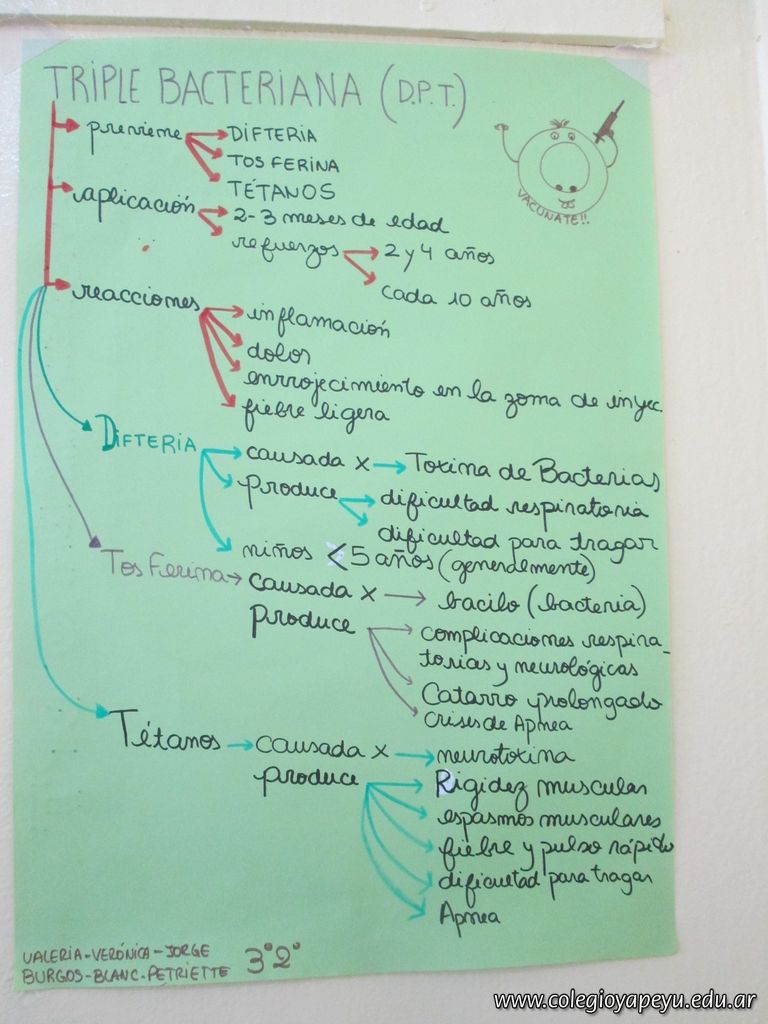 TRIPLE BACTERIANA (D.P.T.)
previene DIFTERIA
TOS FERINA
TÉTANOS
VACUNATE!!
aplicación 2-3 meses de edad
refuerzos 2 y 4 años
cada 10 años
reacciones inflamación
dolor
enrrojecimiento en la zona de inyec.
fiebre ligera
DIFTERIA causada x Toxina de Bacterias
produce dificultad respiratoria
dificultad para tragar
niños < 5 años (generalmente)
Tos Ferina causada x bacilo (bacteria)
produce complicaciones respira-
torias y neurológicas
Catarro prolongado
Crises de Apnea
Tétanos causada x neurotoxina
produce Rigidez muscular
espasmos musculares
fiebre y pulso rápido
dificultad para tragar
Apnea
VALERIA-VERÓNICA-JORGE
BURGOS-BLANC-PETRIETTE 3°2°
www.colegioyapeyu.edu.ar